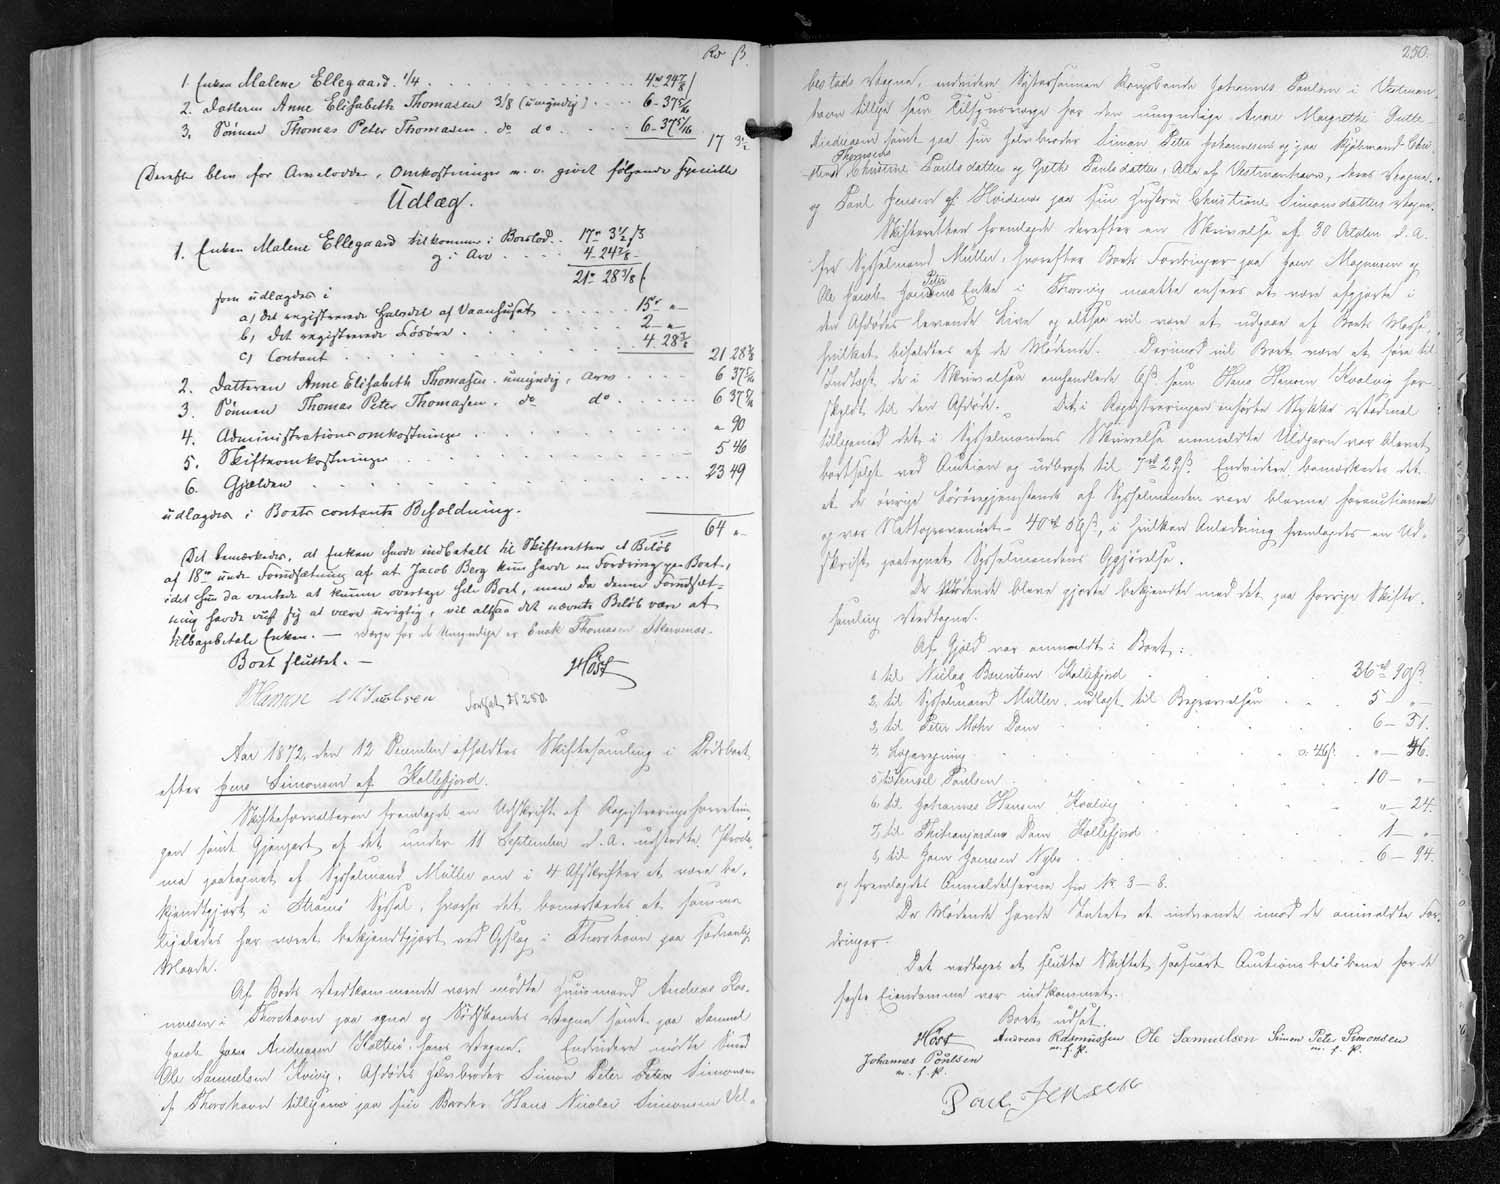 Rd ß.
1. Enken Malene Ellegaard. 1/4 . . . 4 rd 24 7/8 ß
2. Datteren Anne Elisabeth Thomasen 3/8 (umyndig) . . . 6 - 37 5/16
3. Sønnen Thomas Peter Thomasen. do do . . . 6 - 37 5/16
17 3 1/2
Derefter blev for Arvelodder, Omkostninger m. v. givet følgende specielle
Udlæg.
1. Enken Malene Ellegaard tilkommer i Boeslod . . 17 rd 3 1/2 ß
og i Arv . . . 4 - 24 7/8 -
21 rd 28 3/8 ß
som udlægdes i
a, det registrerede Halvdel af Vaanhuset . . . 15 rd " -
b, det registrerede Løsøre . . . 2 - " -
c, Contant . . . 4. 28 3/8
21 28 3/8
2. Datteren Anne Elisabeth Thomasen. umyndig, Arv . . . 6 37 5/16
3. Sønnen Thomas Peter Thomasen. do do . . . 6 37 5/16
4. Administrationsomkostninger . . . " 90
5. Skifteomkostninger . . . 5 46
6. Gjælden . . . 23 49
udlægdes i Boets contante Beholdning.
64 " -
Det bemærkedes, at Enken havde indbetalt til Skifteretten et Beløb
af 18 rd under Forudsætning af at Jacob Berg kun havde en Fordring paa Boet,
idet hun da ventede at kunne overtage hele Boet, men da denne Forudsæt-
ning havde viist sig at være urigtig, vil altsaa det nævnte Beløb være at
tilbagebetale Enken. — Værge for de Umyndige er Enok Thomasen Skarvenæs.
Boet sluttet. —
HHøst
JHansen MJacobsen
Fortsat Fol 250.
Aar 1872, den 12 December afholdtes Skiftesamling i Dødsboet
efter Jens Simonsen af Kollefjord.
Skifteforvalteren fremlagde en Udskrift af Registreringsforretnin-
gen samt Gjenpart af det under 11 September d. A. udstedte Procla-
ma paategnet af Sysselmand Müller om i 4 Afskrifter at være be-
kjendtgjort i Strømø Syssel, hvorhos det bemærkedes at samme
ligeledes har været bekjendtgjort ved Opslag i Thorshavn paa sædvanlig
Maade.
Af Boets Vedkommende vare mødte Huusmand Andreas Ras-
mussen i Thorshavn paa egne og Sødskendes Vegne samt paa Samuel
Jacob Joen Andreasen Kaltbak hans Vegne. Endvidere mødte Smed
Ole Samuelsen Kvivig, Afdødes Halvbroder Simon Peter Simonsen
af Thorshavn tilligemed paa sin Broder Hans Nicolai Simonsen Vel-
250.
bestads Vegne, endvidere Søstersønnen Johannes Poulsen i Vestman-
havn tillige som Tilsynsværge for den umyndige Anne Margrethe Gulle-
Andreasen samt paa sin Halvbroder Simon Peter Johannesens og paa
Thomine
Christine Poulsdatter og Grethe Poulsdatter, Alle af Vestmanhavn, deres Vegne.
og Poul Jensen af Hvidenæs paa sin Hustru Christiane Simonsdatters Vegne.
Skifteretten fremlagde derefter en Skrivelse af 30 October d. A.
fra Sysselmand Müller, hvorefter Boets Fordringer paa Joen Magnusen og
Peter
Ole Jacob Joensens Enke i Thorsvig maatte ansees at være afgjorte i
den Afdødes levende Live og altsaa vil være at udgaae af Boets Masse,
hvilket tiltraadtes af de Mødende. Derimod vil Boet være at føre til
Indtægt de i Skrivelsen omhandlede 6ß som Hans Hansen Kvalvig har
skyldt til den Afdøde. Det i Registreringen anførte Stykke Vadmel
tilligemed det i Sysselmandens Skrivelse anmeldte Uldgarn var blevet
bortsolgt ved Auction og udbragt til 7 rd 29 ß. Endvidere bemærkedes det
at de øvrige Løsøregjenstande af Sysselmanden vare blevne forauctionerede
og var Nettoprovenuet — 40 rd 56 ß, i hvilken Anledning fremlagdes en Ud-
skrift paategnet Sysselmandens Opgjørelse.
De Mødende bleve gjorte bekjendte med det paa forrige Skifte-
samling Vedtagne.
Af Gjæld var anmeldt i Boet:
1, til Niclas Berentsen Kollefjord . . . 36 rd 90 ß
2, til Sysselmand Müller, udlagt til Begravelsen . . . 5 - " -
3, til Peter Mohr Dam . . . 6 - 31.
4, Lægeregning . . . a 46 ß. . . " - 46.
5, til Wensel Poulsen . . . 10 - " -
6, til Johannes Hansen Kvalvig . . . " - 24.
7, til Dam Kollefjord . . . 1 - " -
8, til Joen Joensen Nybø . . . 6 - 94.
og fremlagdes Anmeldelserne fra Nr. 3 — 8.
De Mødende havde Intet at indvende imod de anmeldte For-
dringer.
Det vedtoges at slutte Skiftet saasnart Auctionsbeløbene for de
faste Eiendomme var indkommet.
Boet udsat.
HHøst Andreas Rasmussen Ole Samuelsen Simon Peter Simonsen
m. f. P. m. f. P.
Johannes Poulsen
m. f. P.
Poul Jensen